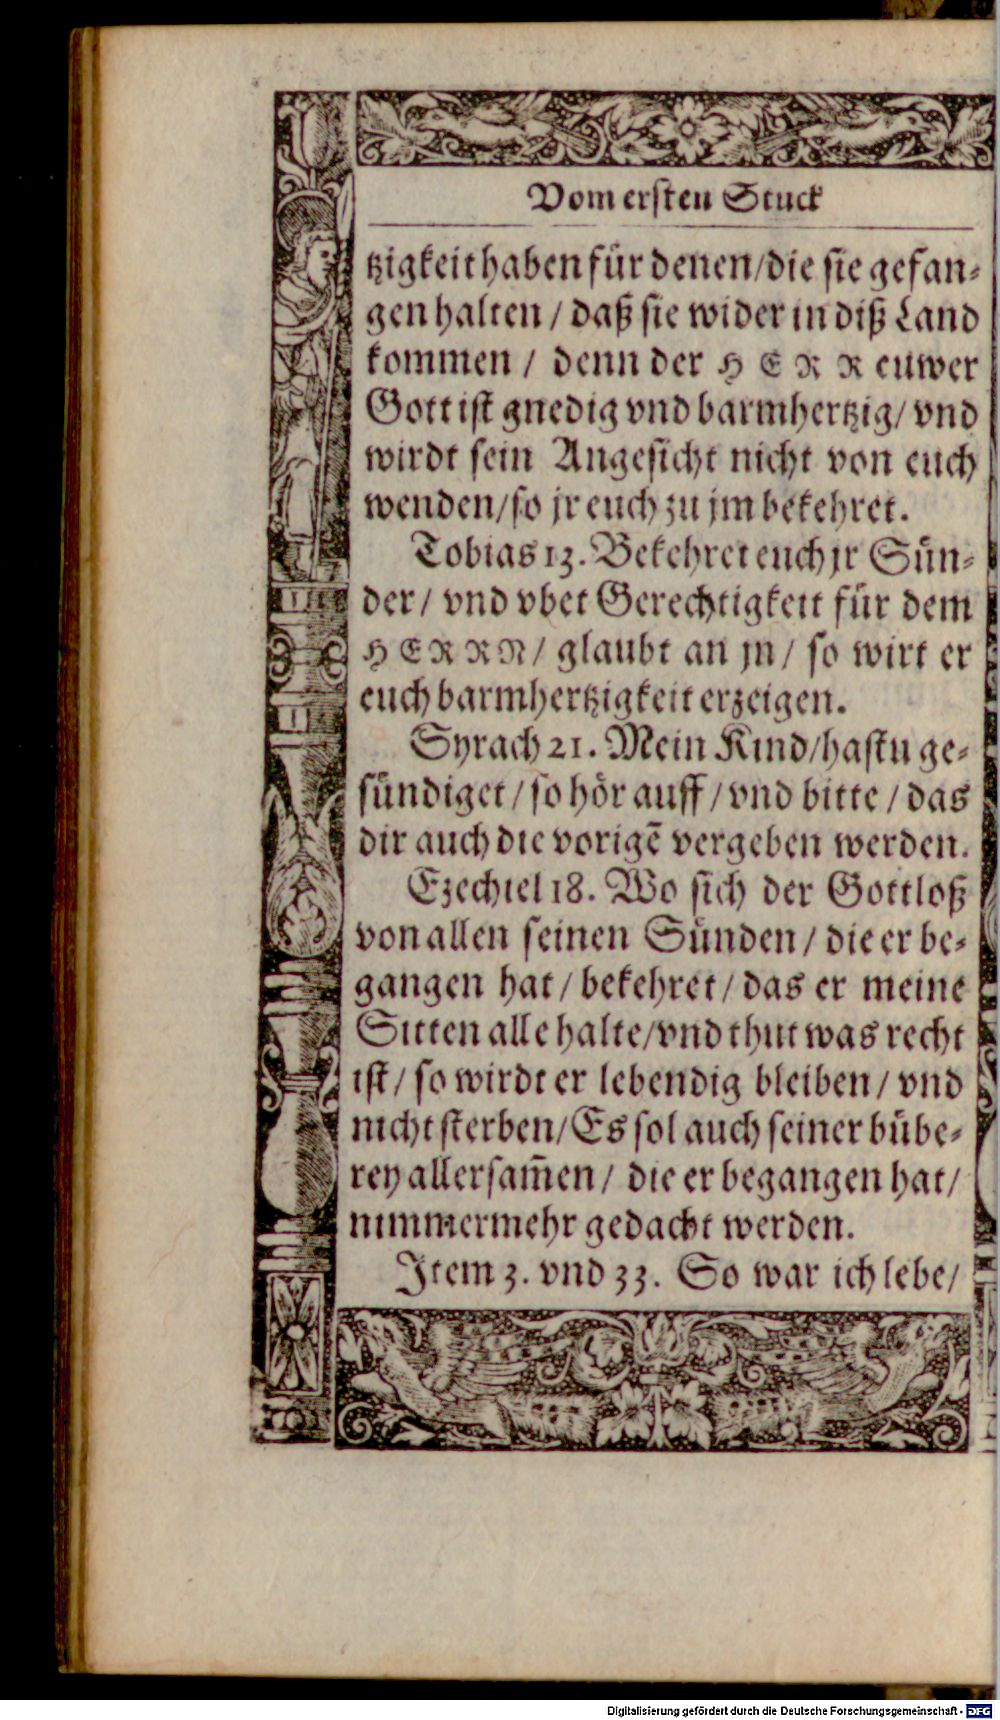 Vom ersten Stuck
tzigkeit haben für denen/die sie gefan-
gen halten / daß sie wider in diß Land
kommen / denn der HERR euwer
Gott ist gnedig vnd barmhertzig/ vnd
wirdt sein Angesicht nicht von euch
wenden/so jr euch zu jm bekehret.
Tobias 13. Bekehret euch jr Sün-
der/ vnd vbet Gerechtigkeit für dem
HERRN/ glaubt an jn/ so wirt er
euch barmhertzigkeit erzeigen.
Syrach 21. Mein Kind/hastu ge-
sündiget/so hör auff/vnd bitte/das
dir auch die vorigē vergeben werden.
Ezechiel 18. Wo sich der Gottloß
von allen seinen Sünden/ die er be-
gangen hat/ bekehret/ das er meine
Sitten alle halte/vnd thut was recht
ist/ so wirdt er lebendig bleiben/ vnd
nicht sterben/Es sol auch seiner bübe-
rey aller sam̄en/ die er begangen hat/
nimmermehr gedacht werden.
Item 3. vnd 33. So war ich lebe/
Digitalisierung gefördert durch die Deutsche Forschungsgemeinschaft - DFG